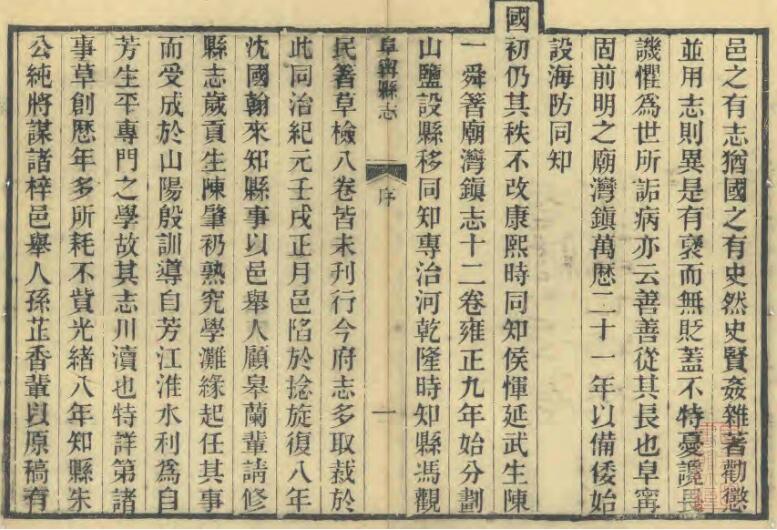 邑之有志猶國之有史然史賢姦雜著勸懲
並用志則異是有褒而無貶蓋不特憂讒畏
譏懼為世所詬病亦云善善從其長也阜寗
固前明之廟灣鎭萬歷二十一年以備倭始
設海防同知
國初仍其秩不改康熙時同知侯惲延武生陳
一舜箸廟灣鎭志十二卷雍正九年始分劃
山鹽設縣移同知專治河乾隆時知縣馮觀
阜寗縣志 序 一
民箸草檢八卷皆未刊行今府志多取裁於
此同治紀元壬戌正月邑陷於捻旋復八年
沈國翰來知縣事以邑舉人顧皋蘭輩請修
縣志歲貢生陳肇礽熟究學灘緣起任其事
而受成於山陽殷訓導自芳江淮水利為自
芳生平專門之學故其志川瀆也特詳第諸
事草創歷年多所耗不貲光緒八年知縣朱
公純將謀諸梓邑舉人孫芷香輩以原稿有